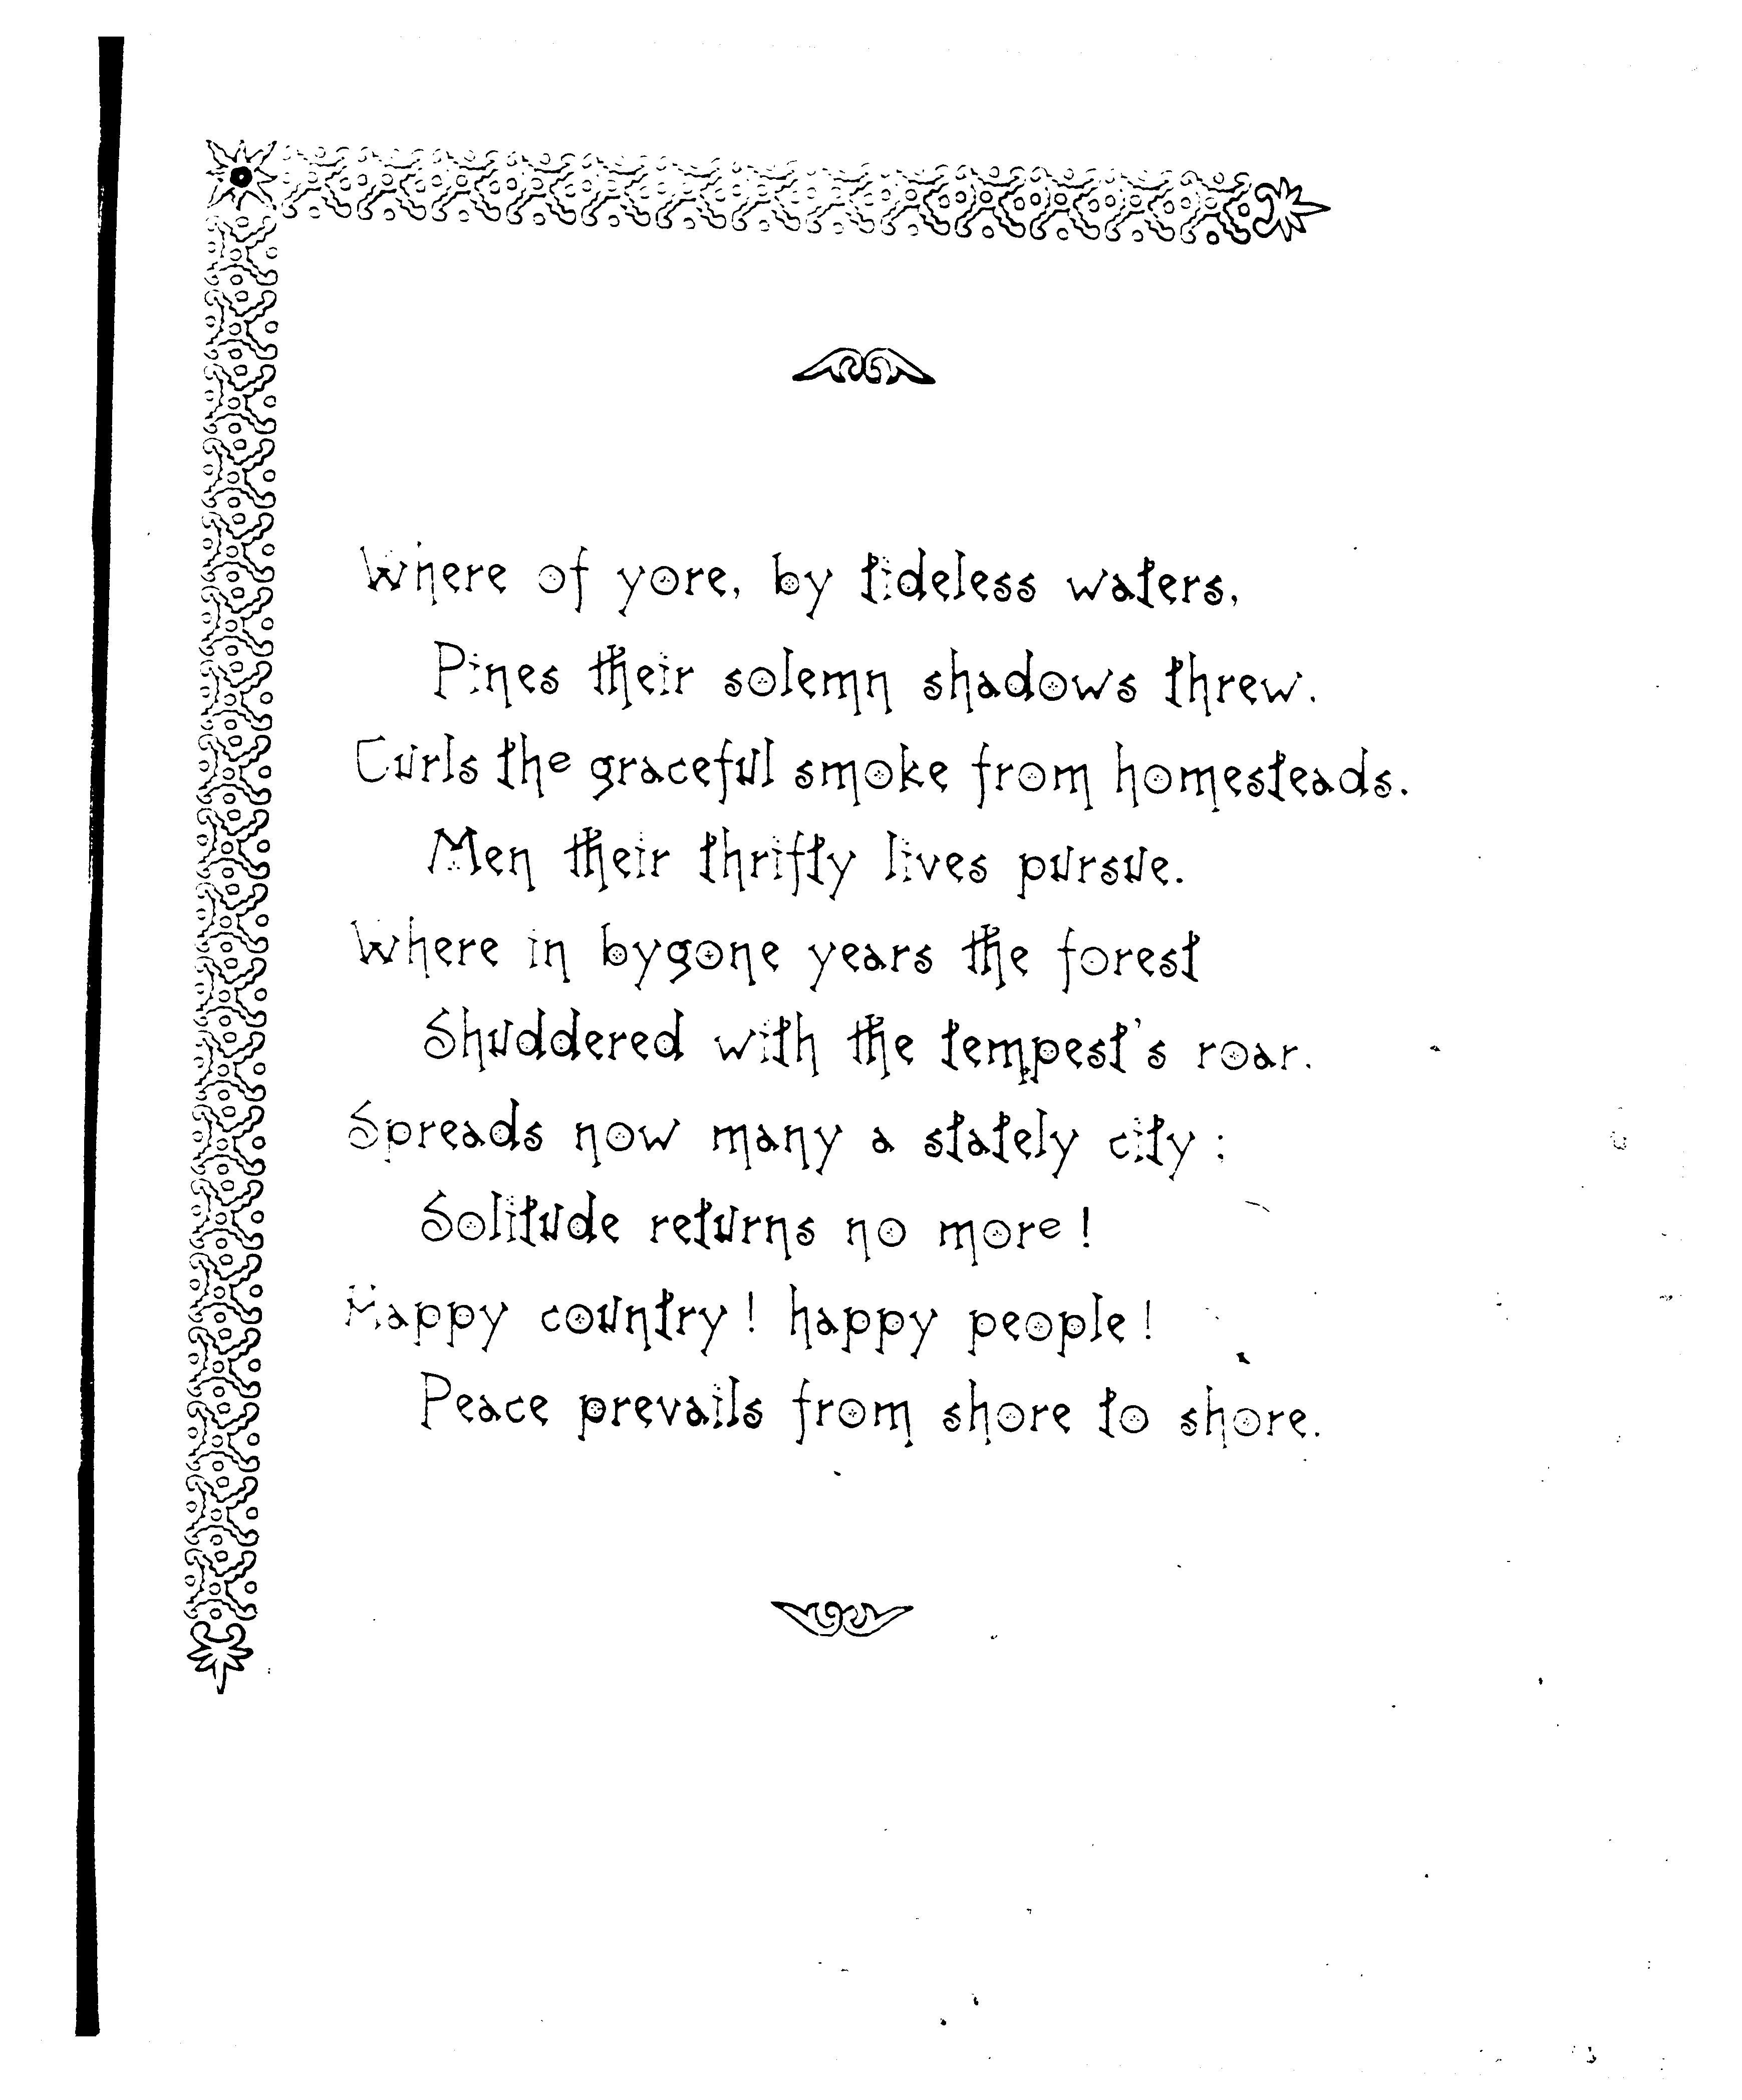 Where of yore, by tideless waters,
Pines their solemn shadows threw.
Curls the graceful smoke from homesteads.
Men their thrifty lives pursue.
Where in bygone years the forest
Shuddered with the tempest's roar.
Spreads now many a stately city :
Solitude returns no more !
Happy country ! happy people !
Peace prevails from shore to shore.